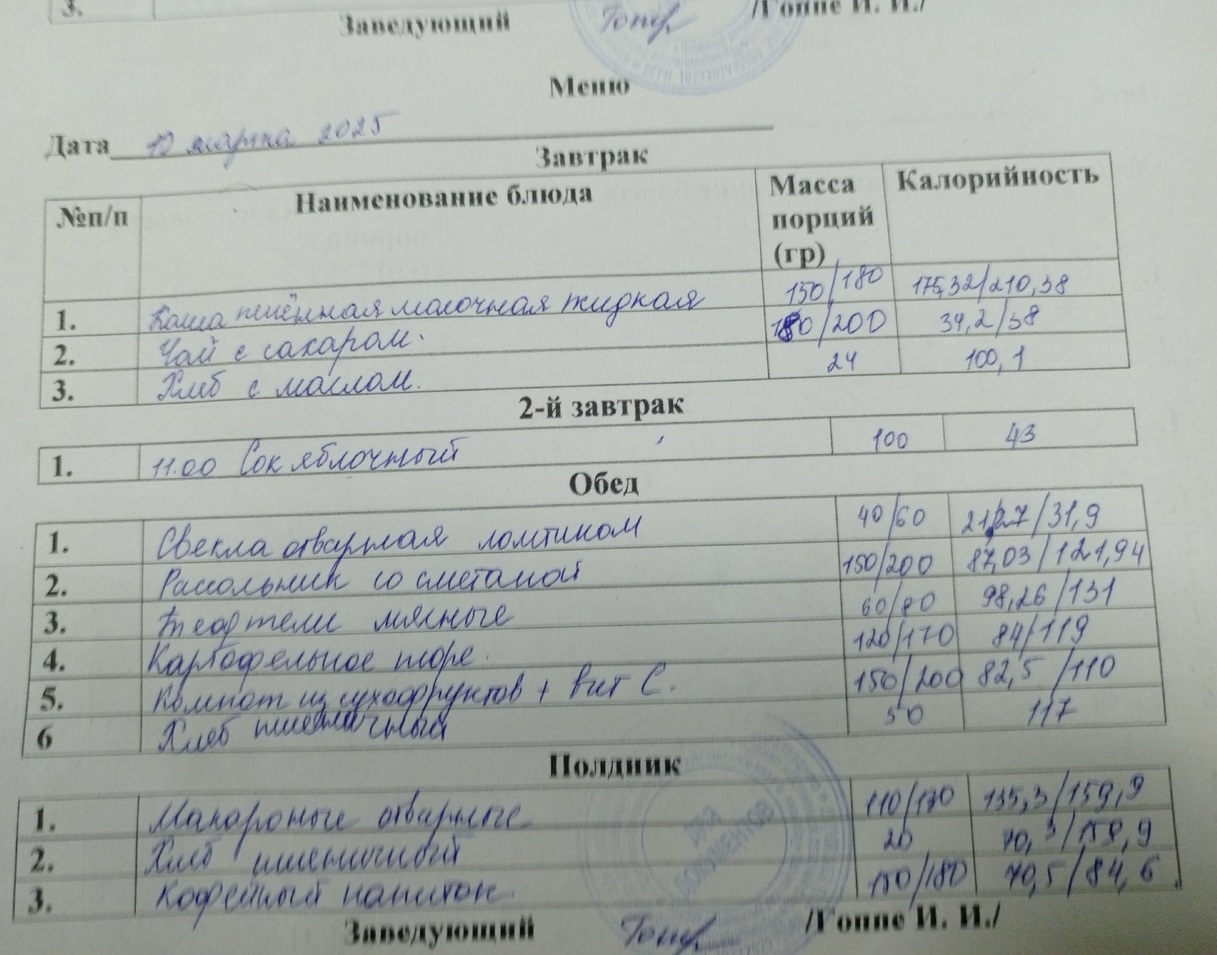 3.
Заведующий /Гоппе И. И./
Меню
Дата марта 2025
Завтрак
№п/п Наименование блюда Масса порций (гр) Калорийность
1. Каша пшённая молочная жидкая 150/180 175,32/210,38
2. Чай с сахаром. 180/200 34,2/38
3. Хлеб с маслом. 24 100,1
2-й завтрак
1. 11.00 Сок яблочный 100 43
Обед
1. Свекла отварная ломтиком 40/60 /31,9
2. Рассольник со сметаной 150/200 87,03/121,94
3. Тефтели мясные 60/80 98,26/131
4. Картофельное пюре. 120/170 84/119
5. Компот из сухофруктов + вит С. 150/200 82,5/110
6 Хлеб пшеничный 50 117
Полдник
1. Макароные отварные 110/130 135,3/159,9
2. Хлеб пшеничный 20
3. Кофейный напиток. 150/180 70,5/84,6
ДЛЯ
ДОКУМЕНТОВ
Заведующий /Гоппе И. И./